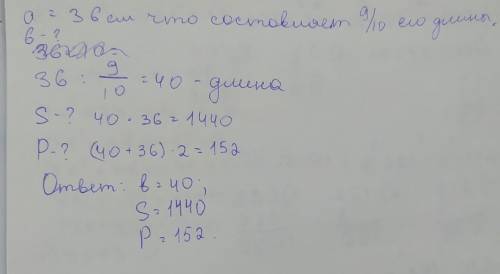 a = 36 см что составляет 9/10 его длины.
b - ?
36 : 9/10 = 40 - длина
S-? 40 · 36 = 1440
P-? (40+36) · 2 = 152
Ответ: b = 40;
S = 1440
P = 152.